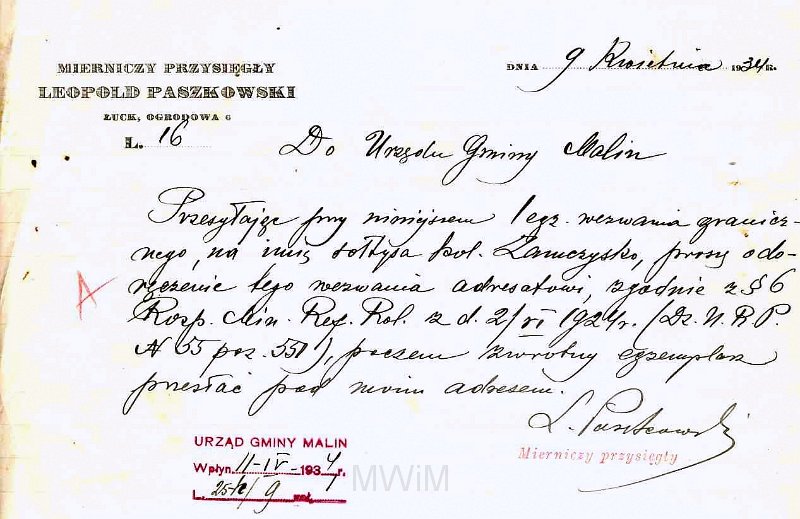 MIERNICZY PRZYSIĘGŁY
LEOPOLD PASZKOWSKI
ŁUCK, OGRODOWA 6
L. 16
DNIA 9 Kwietnia 1934 R.
Do Urzędu Gminy Malin
Przesyłając przy niniejszem 1 egz. wezwania granicz-
nego, na imię sołtysa kol. Zamczysko, proszę o do-
ręczenie tego wezwania adresatowi, zgodnie z § 6
Rozp. Min. Ref. Rol. z d. 2/VI 1924 r. (Dz. U. R. P.
N 55 poz. 551), poczem zwrotny egzemplarz
przesłać pod moim adresem.
L. Paszkowski
Mierniczy przysięgły
A
URZĄD GMINY MALIN
Wpłyn. 11-IV-1934 r.
L. /9 zał.
MWiM